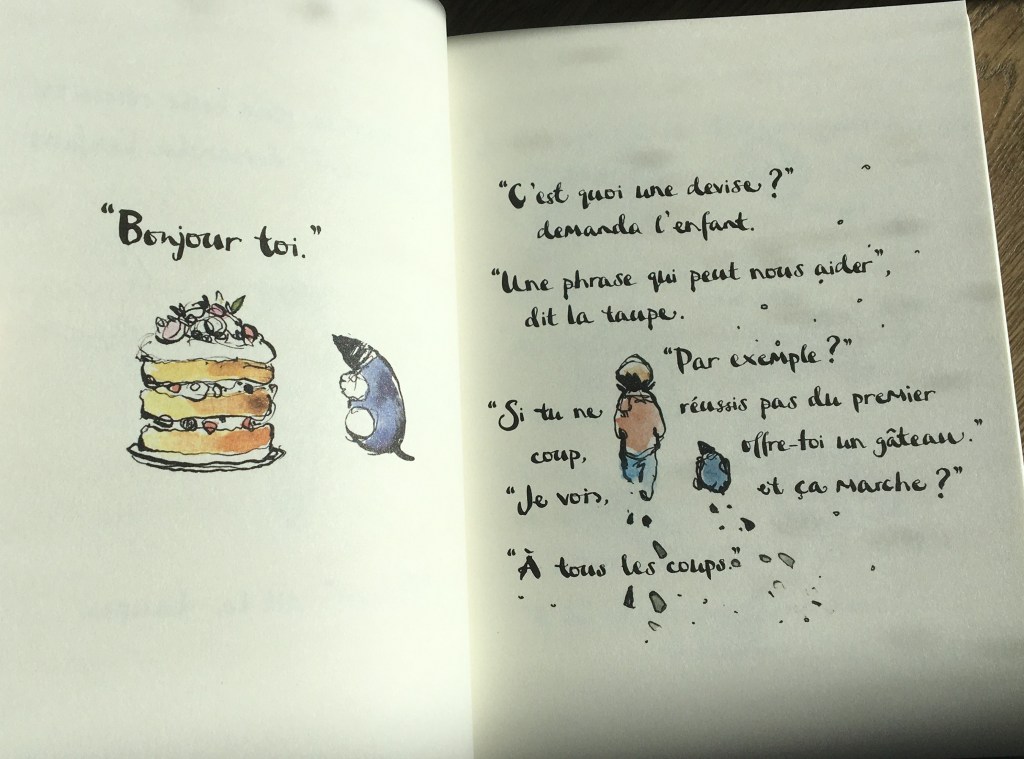 “Bonjour toi.”
“C'est quoi une devise ?”
demanda l'enfant.
“Une phrase qui peut nous aider”,
dit la taupe.
“Par exemple ?”
“Si tu ne réussis pas du premier
coup, offre-toi un gâteau.”
“Je vois, et ça marche ?”
“À tous les coups.”